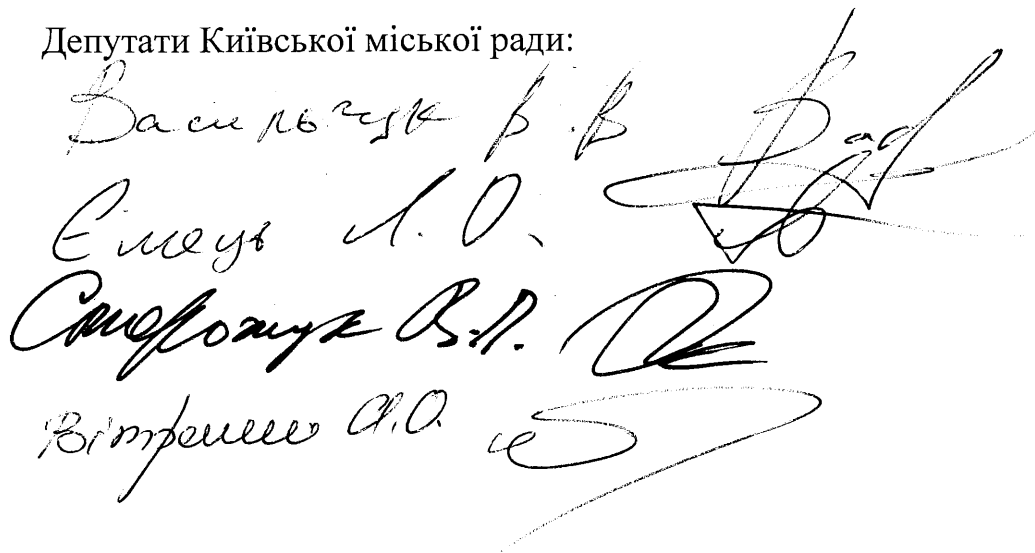 Депутати Київської міської ради:
Васильчук В.В
Ємець Л.О.
Сторожук В.П.
Вітренко А.О.